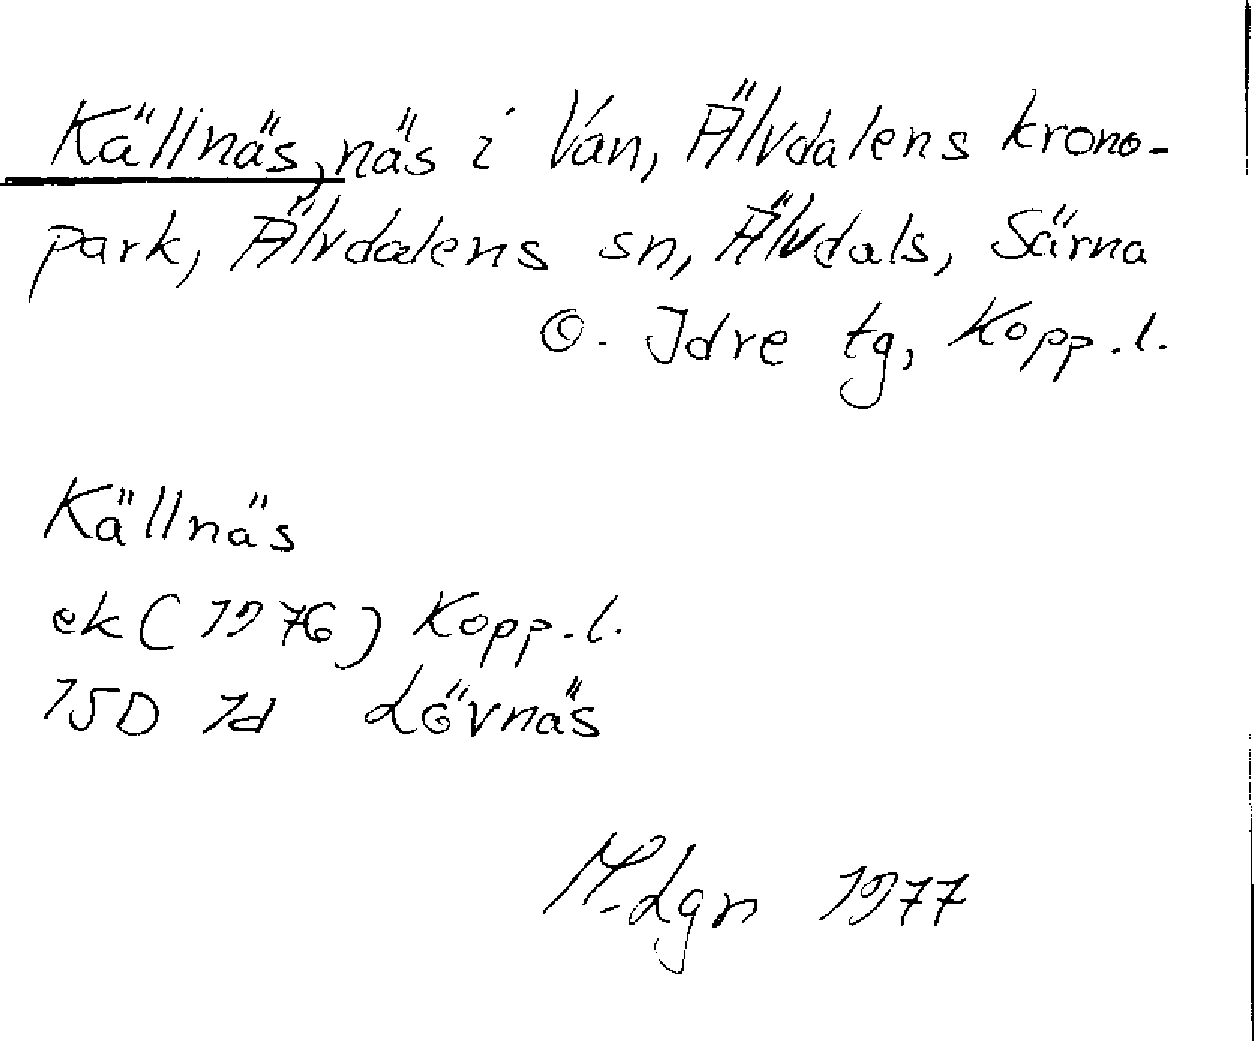 Källnäs, näs i Van, Älvdalens krono-
park, Älvdalens sn, Älvdals, Särna
o. Idre tg, Kopp.l.
Källnäs
ek (1976) Kopp.l.
15D 1d Lövnäs
M-Lgn 1977